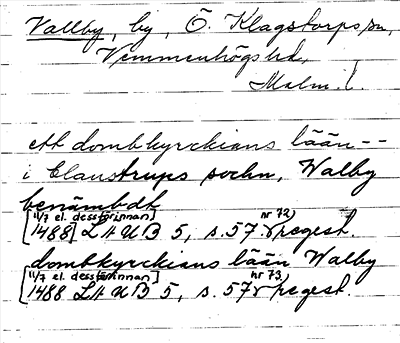 Vallby, by, Ö. Klagstorps sn,
Vemmenhögs hd,
Malm. l.
ett dombkyrckians lään--
i Claustrups sochn, Walby
benämbdt
[11/7 el. dessförinnan] nr 72)
1488] LHUB 5, s. 57 r regest.
dombkyrckians lään Walby
[11/7 el. dessförinnan] nr 73)
1488 LHUB 5, s. 57 r regest.